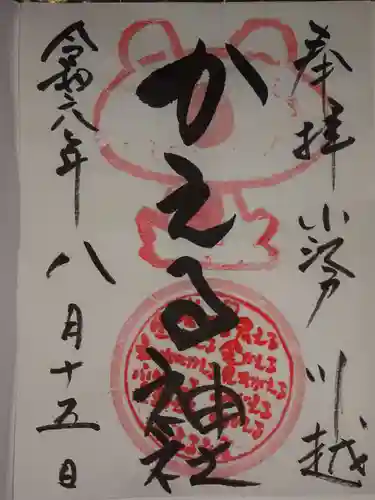 奉拝 小江戸 川越
かえる神社
令和六年 八月十五日